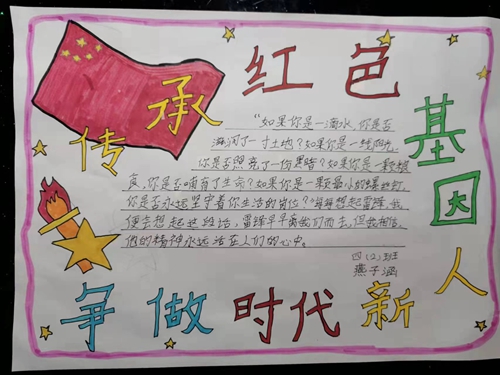 传承红色基因
"如果你是一滴水,你是否
滋润了一寸土地?如果你是一线阳光,
你是否照亮了一份黑暗?如果你是一颗粮
食,你是否哺育了生命?如果你是一颗最小的螺丝钉,
你是否永远坚守着你生活的岗位?"每每想起雷锋,我
便会想起这段话,雷锋早早离我们而去,但我相信,
他的精神永远活在人们的心中。
四(2)班
燕子涵
争做时代新人